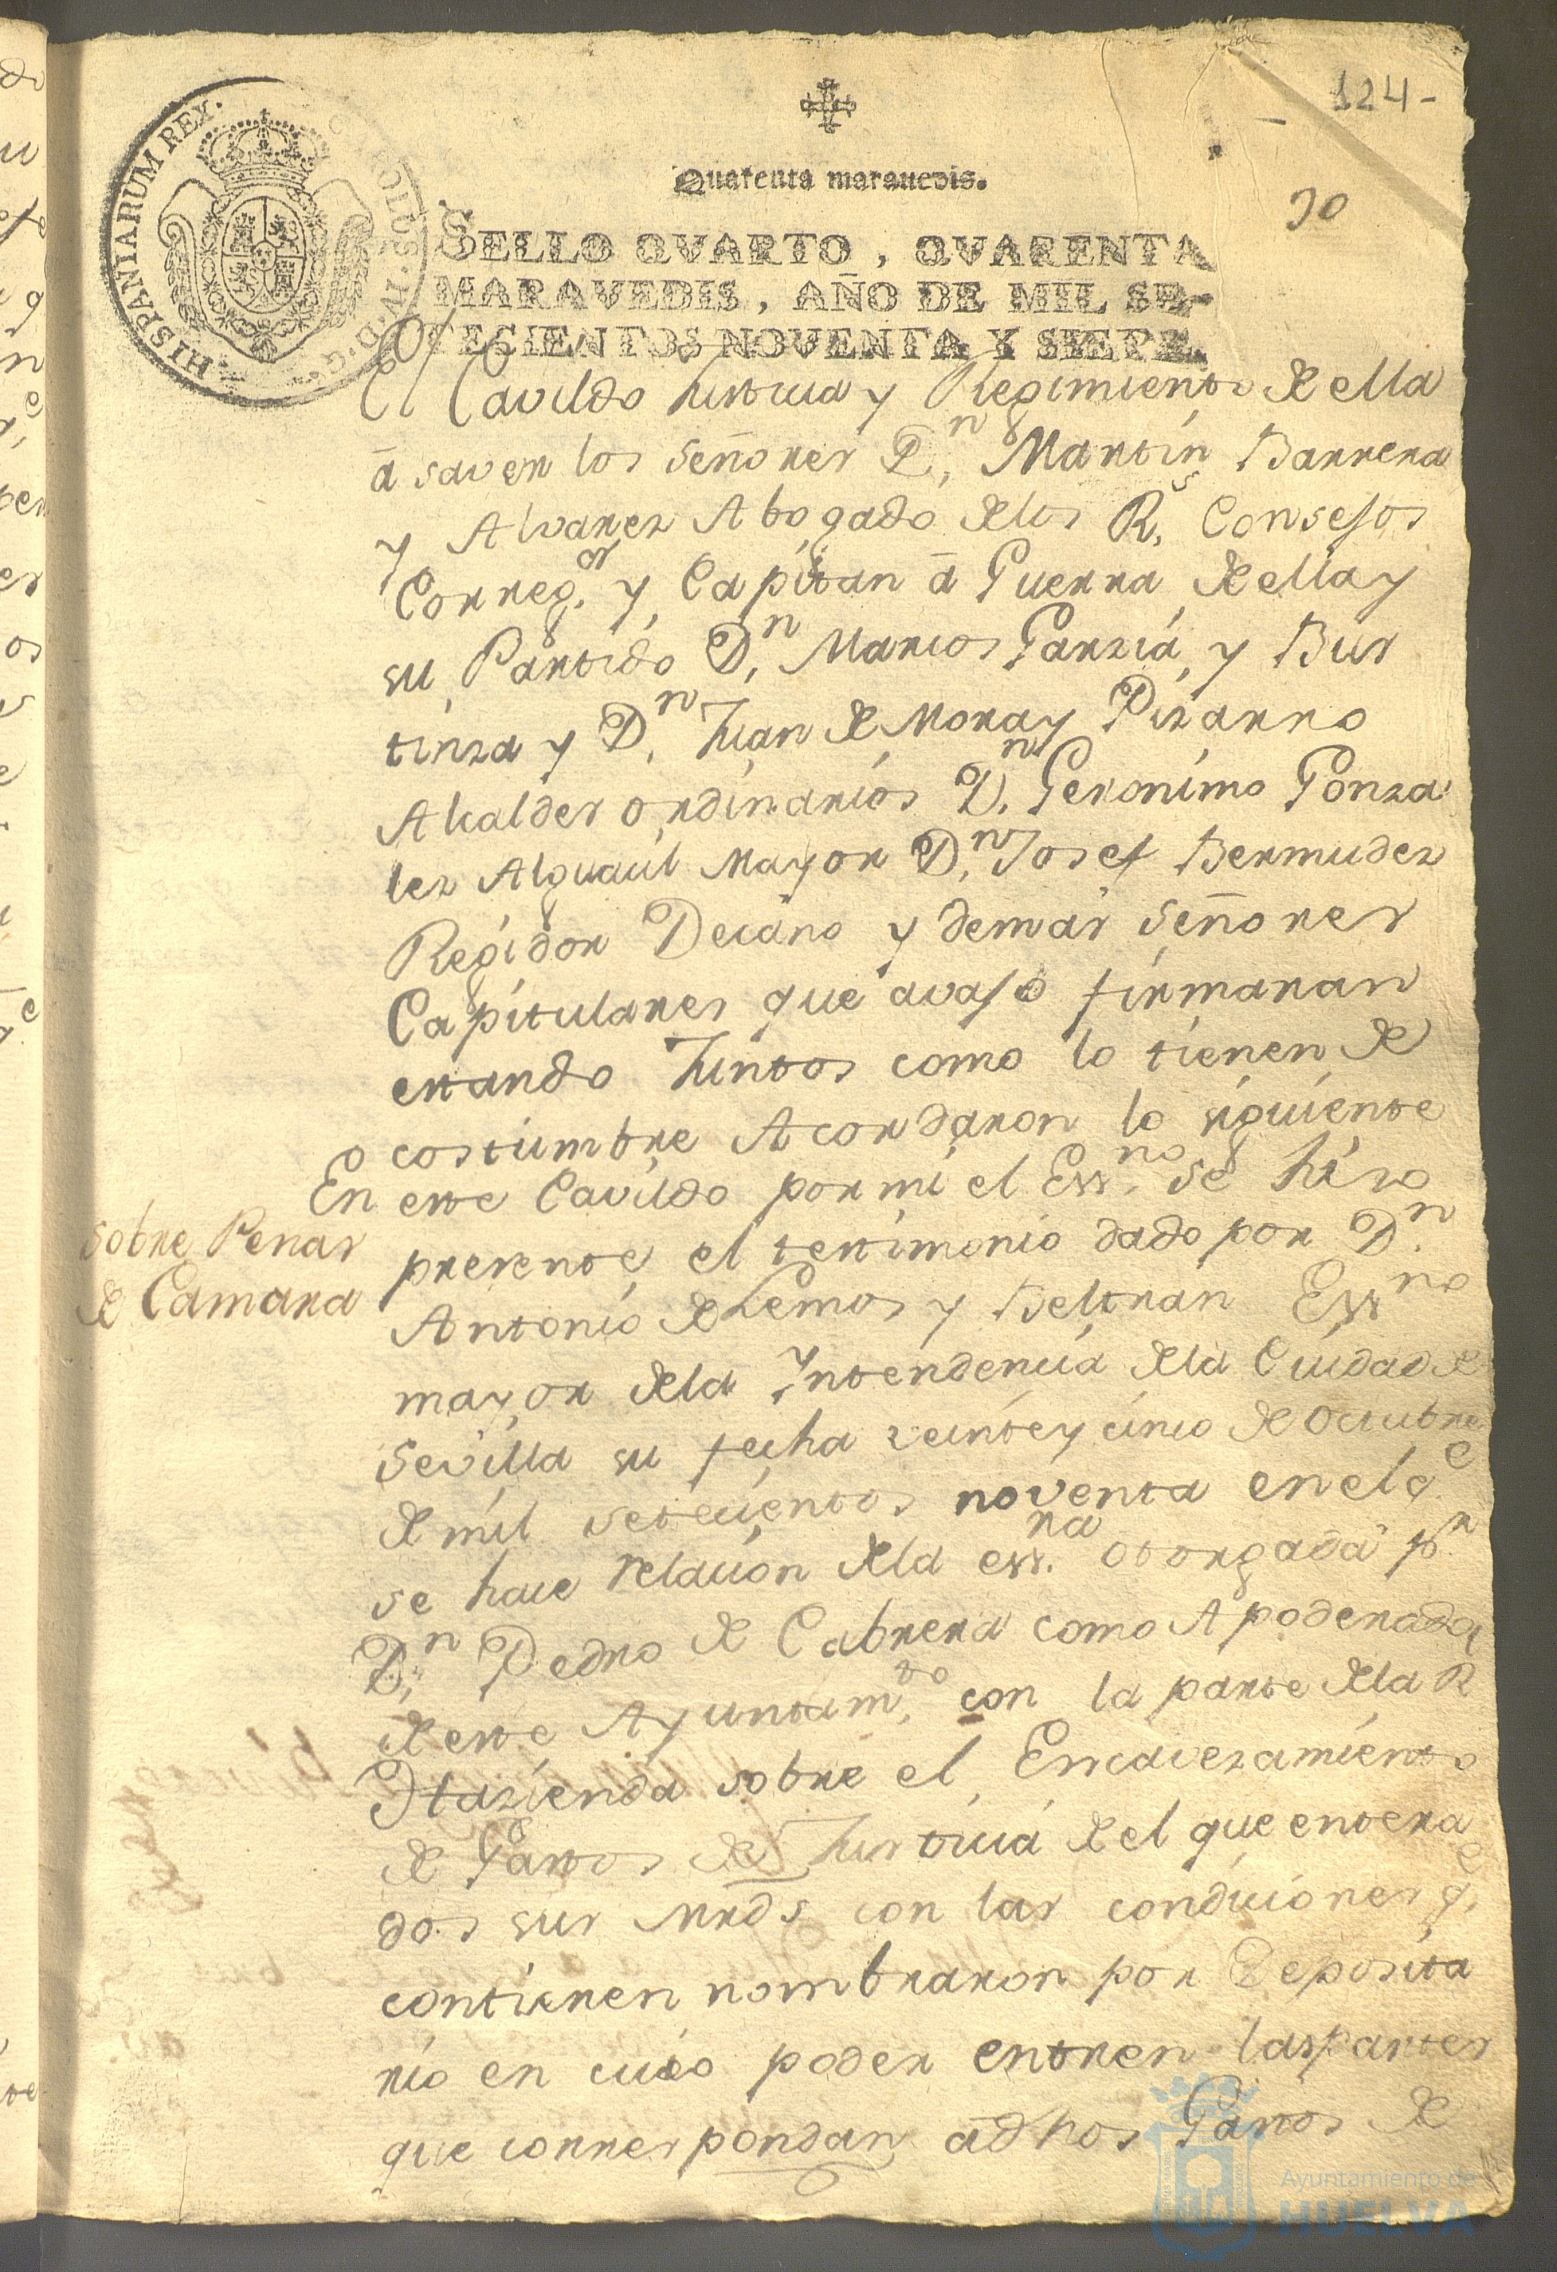 124-
Quarenta maravedis.
90
SELLO QVARTO, QVARENTA
MARAVEDIS, AÑO DE MIL SE-
TECIENTOS NOVENTA Y SIETE.
HISPANIARUM REX. CAROLUS. IV. D. G.
El Cavildo Justicia y Regimiento de ella
â saver los Señores Dn. Martín Barrera
y Alvarez Abogado delos Rs. Consejos
Correg.or y Capitan â Guerra de ella y
su Partido Dn. Marcos Garzia y Bus
tinza y Dn. Juan de Mora y Pizarro
Alcaldes ordinarios Dn. Geronimo Gonza
lez Alguacil Mayor Dn. Josef Bermudez
Regidor Decano y demas Señores
Capitulares que avajo firmaran
estando Juntos como lo tienen de
costumbre Acordaron lo siguiente
sobre Penas
de Camara
En este Cavildo por mi el Ess.no se hizo
presente el testimonio dado por Dn.
Antonio de Lemos y Beltran Ess.no
mayor dela Yntendencia dela Ciudad de
Sevilla su fecha veinte y cinco de Octubre
de mil setecientos noventa en el q.e
se hace relacion dela ess.ra otorgada p.r
Dn. Pedro de Cabrera como Apoderado
de este Ayuntam.to con la parte dela R
Hazienda sobre el Encavezamiento
de Gastos de Justicia de el que entera
dos sus Mrds con las condiciones q.e
contienen nombraron por Deposita
rio en cuio poder entren las partes
que correspondan â dhos Gastos de
Ayuntamiento de
HUELVA